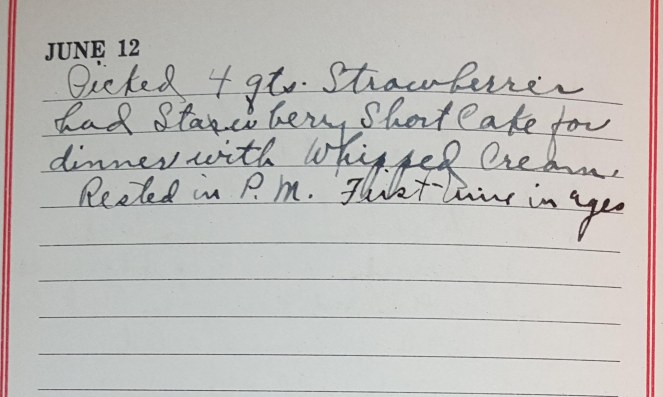 JUNE 12
Picked 4 qts. Strawberries
had Starwberry Short Cake for
dinner with Whipped Cream.
Rested in P.M. First time in ages